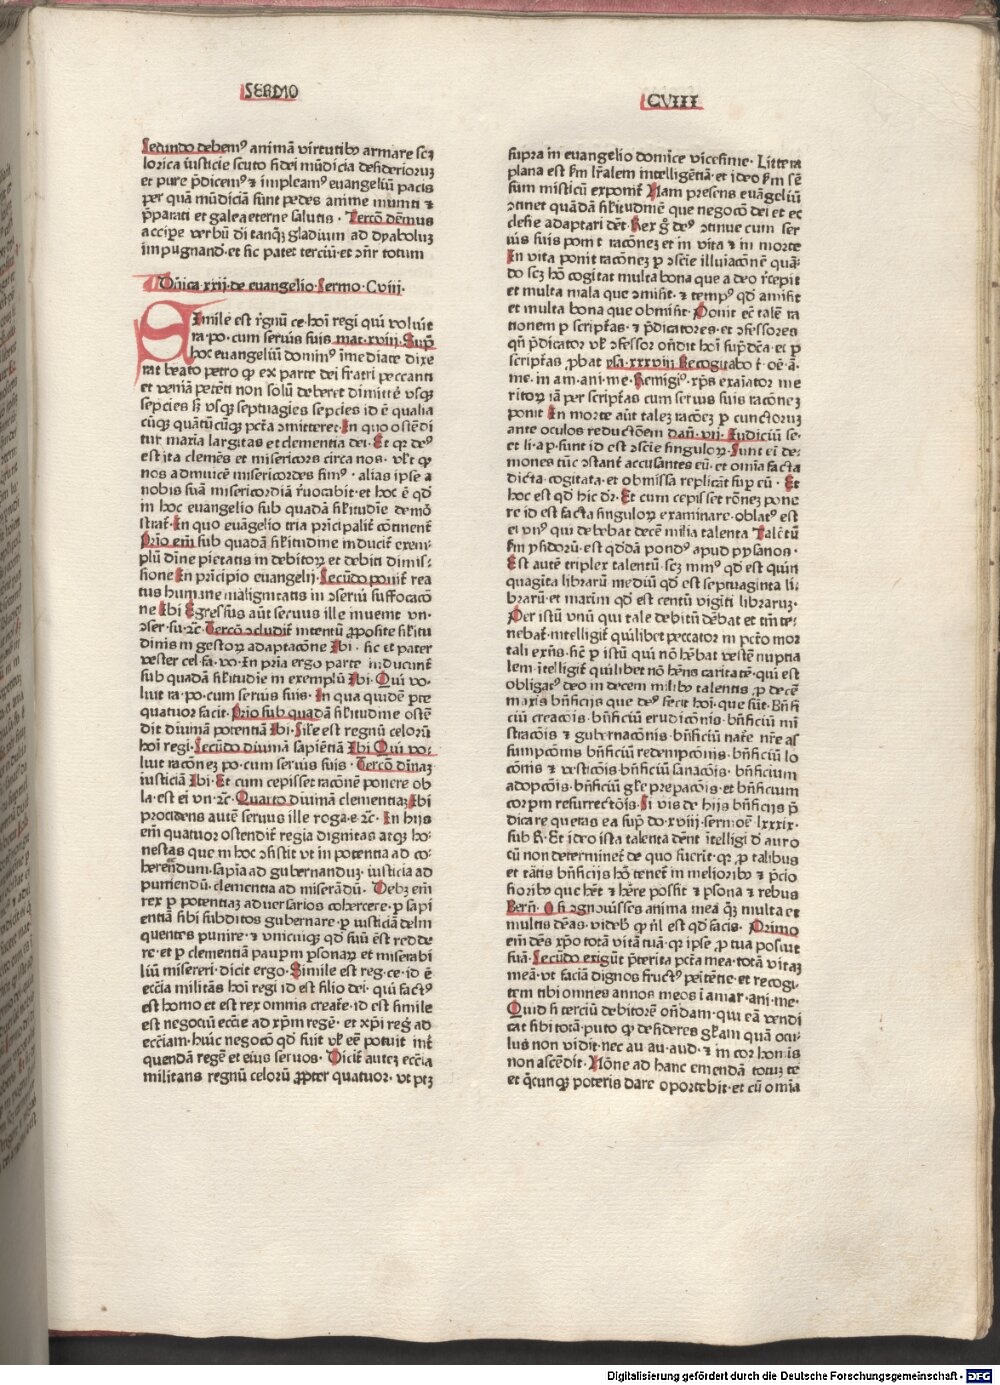 SERMO
CVIII
Secundo debemꝰ animā virtutibꝫ armare scꝫ
lorica iusticie scuto fidei mūdicia desiderioruꝫ
et pure p̄dicemꝰ ⁊ impleamꝰ euangeliū pacis
per quā mūdiciā sunt pedes anime muniti ⁊
p̄parati et galea eterne salutis · Tercō dēmus
accipe verbū di tanqꝫ gladium ad dyaboluꝫ
impugnand̄· et sic patet terciū· et ꝯn̄r totum
Dn̄ica xxij· de euangelio· Sermo· Cviij·
Simile est r̄gnū ce· hoī regi qui voluit
ra· po· cum seruis suis mat· xviij· Sup̄
hoc euangeliū dominꝰ īmediate dixe
rat beato petro ꝙ ex parte dei fratri peccanti
et veniā petēti non solū deberet dimittē vsqꝫ
sepcies sꝫ vsqꝫ septuagies sepcies id ē qualia
cūqꝫ quātūcūqꝫ pctā ꝯmitteret· In quo ostēdi
tur maxīa largitas et clementia dei· Et qꝛ deꝰ
est ita clemēs et misericors circa nos · vl̄t ꝙ
nos adinuicē misericordes simꝰ · alias ipse a
nobis suā misericordiā r̄uocabit· et hoc ē qd̄
in hoc euangelio sub quadā sil̄itudīe demō
strat̄· In quo euāgelio tria pr̄icipalit̄ cōtinent̄
Prīo em̄ sub quadā sil̄itudine inducit̄ exem·
plū diīne pietatis in debitoꝝ et debiti dimis·
sione In pr̄icipio euangelij· Secūdo ponit̄ rea
tus humane malignitatis in ꝯseruī suffocacō
ne Ibi Egressus aūt seruus ille inuenit vn·
ꝯser· su· ⁊c· Tercō ꝯcludit̄ intentū ꝓposite sil̄itu
dinis in gestoꝝ adaptacōne Ibi · sic et pater
vester cel· fa· vo· In prīa ergo parte inducunt̄
sub quadā sil̄itudīe in exemplū Ibi· Qui vo·
luit ra· po· cum seruis suis· In qua quidē pte
quatuor facit· Prīo sub quadā sil̄itudīne ostē
dit diuinā potentiā Ibi· Sil̄e est regnū celorū
hoī regi· Secūdo diuinā sapiētiā Ibi Qui vo·
luit racōneꝫ po· cum seruis suis · Tercō diīnaꝫ
iusticiā Ibi· Et cum cepisset racōnē ponere ob
la· est ei vn· ⁊c· Quarto diuinā clementiaꝫ Ibi
procidens autē seruus ille roga· e· ⁊c· In hijs
em̄ quatuor ostendit̄ regia dignitas atqꝫ ho·
nestas que in hoc ꝯsistit vt in potentia ad co·
hercendum· sapīa ad gubernanduꝫ· iusticia ad
puniendū· clementia ad miserādū · Debꝫ em̄
rex ꝑ potentiaꝫ aduersarios cohercere· ꝑ sapi
entiā sibi subditos gubernare· ꝑ iusticiā delin
quentes punire· ⁊ vnicuiqꝫ qd̄ suū est redde
re· et ꝑ clementiā pauꝑm ꝑsonaꝝ et miserabi
liū misereri· dicit ergo· Simile est reg· ce· id ē
ecc̄ia militās hoī regi id est filio dei· qui factꝰ
est homo et est rex omnis create· id est simile
est negociū ecc̄ie ad xp̄m regē· et xp̄i reḡ ad
ecc̄iam· huic negocō qd̄ fuit vl̄ eē potuit int̄
quendā regē et eius seruos· Dicit̄ auteꝫ ecc̄ia
militans regnū celorū ꝓpter quatuor· vt ptꝫ
supra in euangelio domīce vicesime· Littera
plana est ẜm lr̄alem intelligētiā· et ideo ẜm sē
sum misticū exponit̄ Nam presens euāgeliū
ꝯtinet quādā sil̄itudinē que negocō dei et ec
clesie adaptari dēt· Rex ḡ deꝰ ꝯtinue cum ser
uis suis ponit racōneꝫ et in vita ⁊ in morte
In vita ponit racōneꝫ ꝑ ꝯscīe illuīacōnē quā·
do scꝫ hō cogitat multa bona que a deo r̄cepit
et multa mala que ꝯmisit· ⁊ tempꝰ qd̄ amisit
et multa bona que obmisit· Ponit ec̄ talē ra
tionem ꝑ scriptās· ⁊ p̄dicatores· et ꝯfessores
qn̄ p̄dicator vl̄ ꝯfessor on̄dit hoī sup̄dcā· et ꝑ
scriptās ꝓbat ysa· xxxviij Recogitabo t̄· oē· ā·
me· in am· ani· me· Remigiꝰ· xp̄s exaīator me
ritoꝝ iā per scriptās cum seruis suis racōneꝫ
ponit In morte aūt taleꝫ racōeꝫ ꝑ cunctoruꝫ
ante oculos reductōem dan̄· vij· Iudiciū se·
et li· a ꝑ· sunt id est ꝯscīe singuloꝝ· Sunt em̄ de·
mones tūc ꝯstant̄ accusantes eū· et omīa facta
dicta· cogitata· et obmissa replicāt suꝑ eū · Et
hoc est qd̄ hic dr̄· Et cum cepisset rōneꝫ pone
re id est facta singuloꝝ examinare· oblatꝰ est
ei vnꝰ qui debebat decē milia talenta Talētū
ẜm ysidorū· est qd̄dā pondꝰ apud pysanos ·
Est autē triplex talentū· scꝫ minꝰ qd̄ est quin
quagīta librarū mediū qd̄ est septuaginta li·
brarū· et maxim̄ qd̄ est centū vigīti libraruꝫ·
Per istū vnū qui tale debitū dēbat et tm̄te·
nebat̄· intelligit̄ quilibet peccator in pctō mor
tali exn̄s· sic̄ ꝑ istū qui nō hēbat vestē nuptia
lem· ītelligit̄ quilibet nō hēns caritatē· qui est
obligatꝰ deo in decem milibꝫ talentis ꝓ decē
maxīs bn̄ficijs que deꝰ fecit hoī· que sūt· Bn̄fi
ciū creacōis· bn̄ficiū erudicōnis· bn̄ficiū mī
stracōis ⁊ gubernacōnis· bn̄ficiū natē nrē as
sumpcōnis· bn̄ficiū redempcōnis· bn̄ficiū lo
cōnis ⁊ vesticōis· bn̄ficiū sanacōis· bn̄ficium
adopcōis· bn̄ficiū gl̄e prepacōis· et bn̄ficium
corꝑm resurrectōis· Si vis de hijs bn̄ficijs p̄
dicare queras ea sup̄ do· xviij· sermoē lxxxix·
sub R· Et ideo ista talenta dēnt ītelligi d̄ auro
cū non determinet̄ de quo fuerit· qꝛ ꝓ talibus
et tātis bn̄ficijs hō tenet̄ in melioribꝫ ⁊ p̄cio
sioribꝫ que hēt ⁊ hēre possit ⁊ ꝑsona ⁊ rebus
Bern̄· O si ꝯgnouisses anima mea qꝫ multa et
multis dēas· videbꝭ ꝙ n̄l est qd̄ facis· Primo
em̄ dēs xp̄o totā vitā tuā· qꝛ ipse ꝓ tua posuit
suā· Secūdo exigūt p̄terita pctā mea· totā vitaꝫ
meā· vt faciā dignos fructꝰ peītētie· et recogi·
tem tibi omnes annos meos ī amar· ani· me·
Quid si terciū debitorē on̄dam· qui eā vendi
cat sibi totā· puto ꝙ desideres gl̄am quā ocu·
lus non vidit· nec au· au· aud· ⁊ in cor homīs
non ascēdit· Nōne ad hanc emendā totuꝫ te
et q̄cunqꝫ poteris dare oportebit· et cū omīa
Digitalisierung gefördert durch die Deutsche Forschungsgemeinschaft · DFG